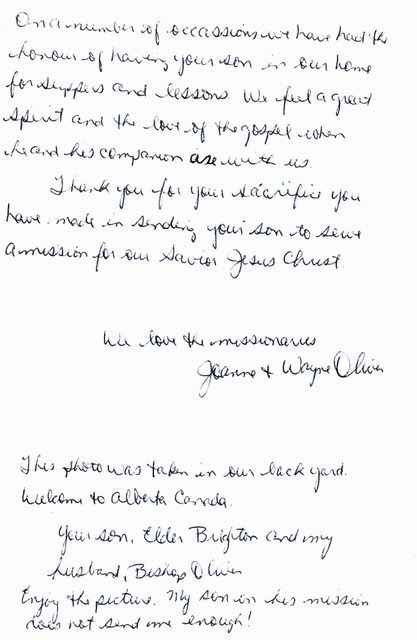 On a number of occassions we have had the
honour of having your son in our home
for suppers and lessons. We feel a great
spirit and the love of the gospel when
he and his companion are with us.
Thank you for your sacrifice you
have made in sending your son to serve
a mission for our Savior Jesus Christ.
We love the missionaries
Joanne + Wayne Oliver
This photo was taken in our back yard.
Welcome to Alberta Canada.
Your son, Elder Brighton and my
husband, Bishop Oliver
Enjoy the picture. My son in his mission
does not send me enough!